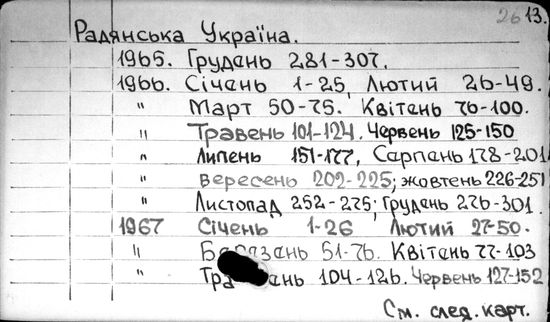 26 13.
Радянська Україна.
1965. Грудень 281-307.
1966. Січень 1-25, Лютий 26-49.
" Март 50-75. Квітень 76-100.
" Травень 101-124. Червень 125-150
" Липень 151-177, Сарпань 178-201
" вересень 202-225; жовтень 226-251
" Листопад 252-275; Грудень 276-301.
1967 Січень 1-26 Лютий 27-50.
" 51-76. Квітень 77-103
" 104-126. Червень 127-152
См. след. карт.